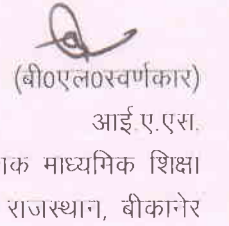 (बी0एल0स्वर्णकार)
आई.ए.एस.
माध्यमिक शिक्षा
राजस्थान, बीकानेर